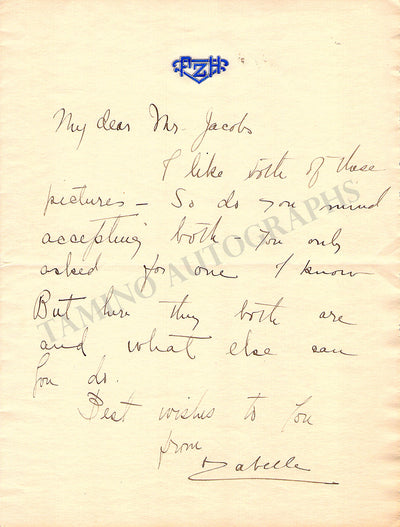 FZH
My dear Mr. Jacobs
I like both of these
pictures – So do you mind
accepting both You only
asked for one I know
But here they both are
and what else can
You do.
Best wishes to You
from
Zabelle
TAMINO AUTOGRAPHS